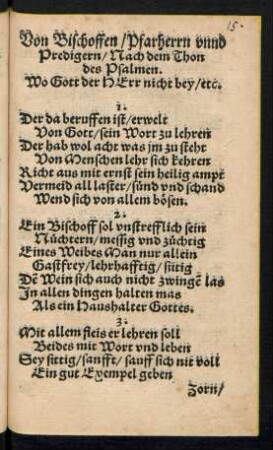 15.
Von Bischoffen / Pfarherrn vnnd
Predigern / Nach dem Thon
des Psalmen.
Wo Gott der HErr nicht bey / etc.
1.
Der da beruffen ist / erwelt
Von Gott / sein Wort zu lehren
Der hab wol acht was jm zu steht
Von Menschen lehr sich kehren
Richt aus mit ernst sein heilig ampt
Vermeid all laster / sünd vnd schand
Wend sich von allem bösen.
2.
Ein Bischoff sol vnstrefflich sein
Nüchtern / messig vnd züchtig
Eines Weibes Man nur allein
Gastfrey / lehrhafftig / sittig
Dē Wein sich auch nicht zwingē las
In allen dingen halten mas
Als ein Haushalter Gottes.
3.
Mit allem fleis er lehren soll
Beides mit Wort vnd leben
Sey sittig / sanfft / sauff sich nit voll
Ein gut Exempel geben
Zorn /